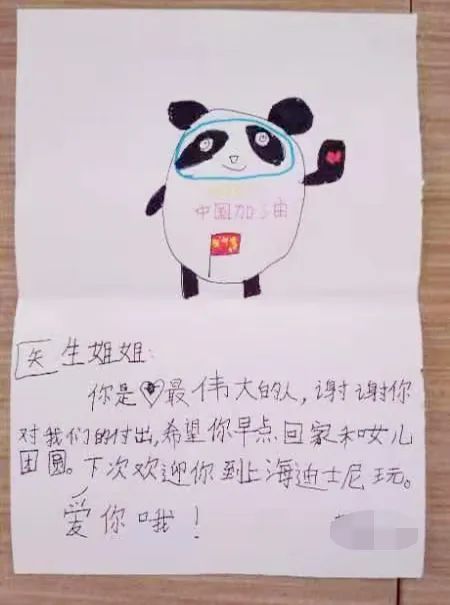 中国加油
医生姐姐:
你是最伟大的人,谢谢你
对我们的付出,希望你早点回家和女儿
团圆。下次欢迎你到上海迪士尼玩。
爱你哦!